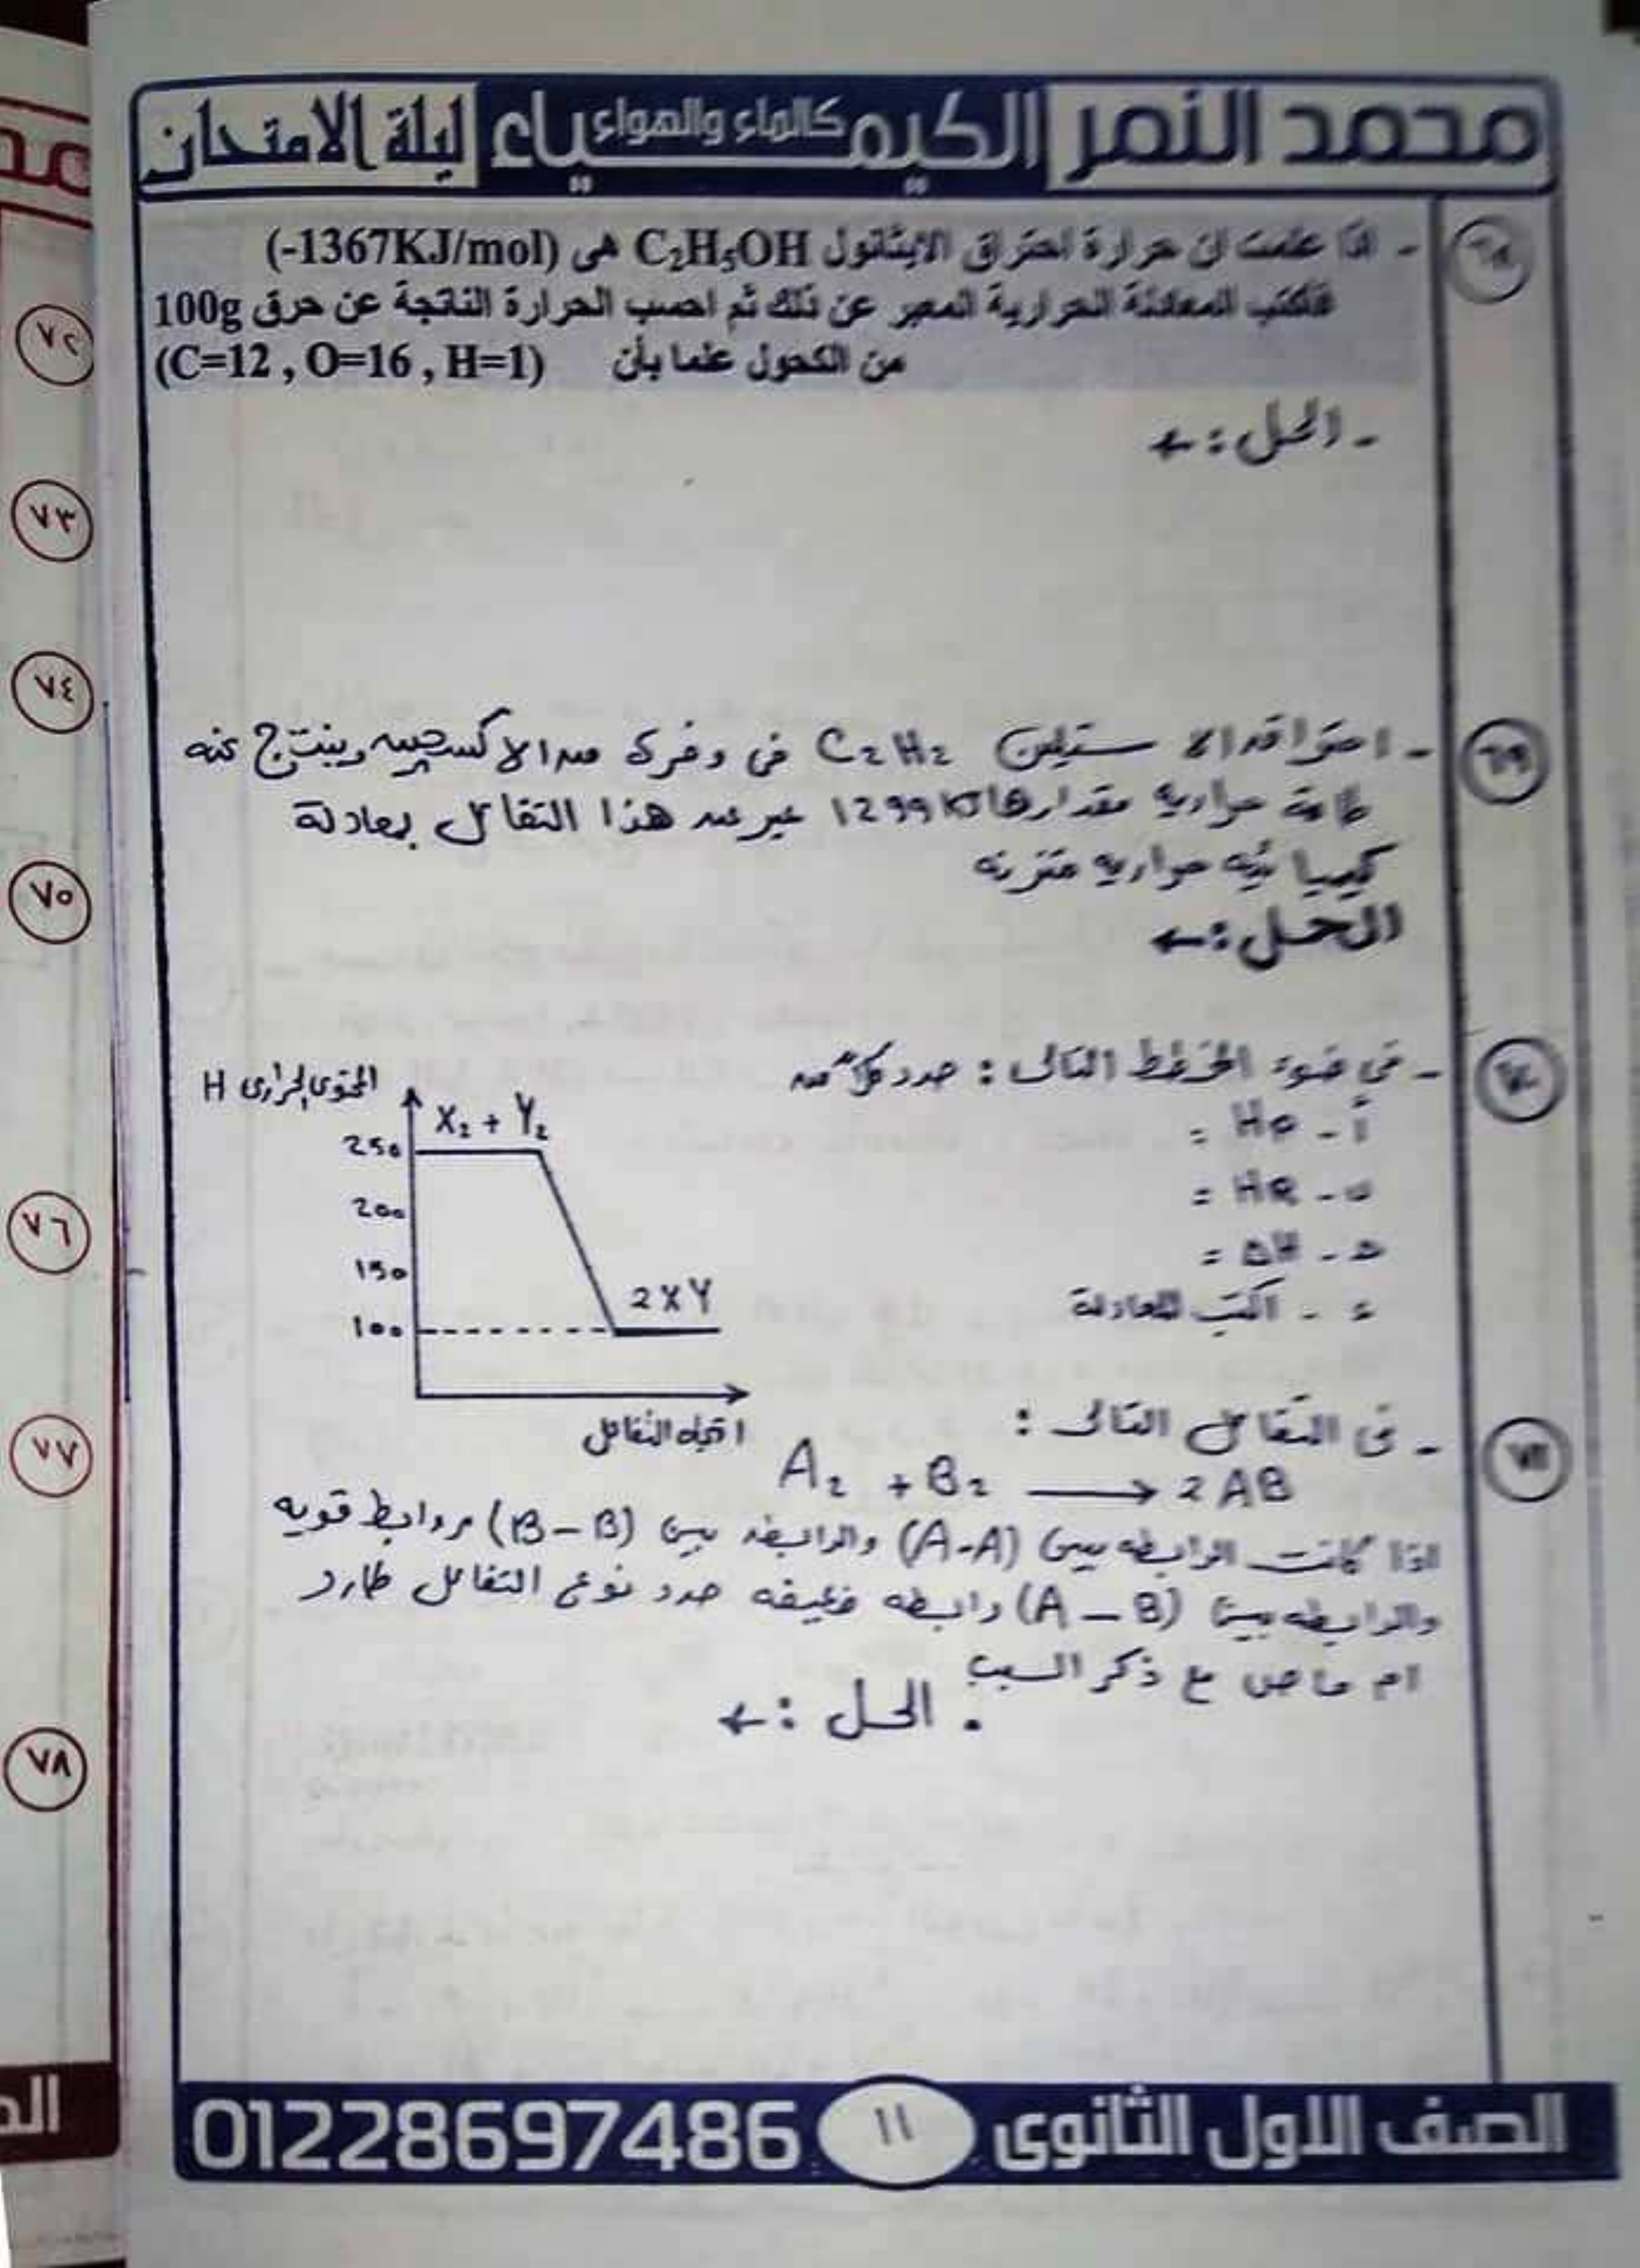 محمد النمر الكيمياء كالماء والهواء ليلة الامتحان
٦٨
- اذا علمت ان حرارة احتراق الايثانول C₂H₅OH هى (-1367KJ/mol)
فاكتب المعادلة الحرارية المعبر عن ذلك ثم احسب الحرارة الناتجة عن حرق 100g
من الكحول علما بأن (C=12 , O=16 , H=1)
- الحل :←
٦٩
- احتراق الاستيلين C₂H₂ فى وفرة من الاكسجين وينتج عنه
طاقة حرارية مقدارها 1299 KJ عبر عن هذا التفاعل بمعادلة
كيميائيه حراريه متزنه
الحل :←
٧٠
- فى ضوء المخطط التالى : حدد كلاً من
أ - HP =
ب - HR =
ح - ΔH =
ء - اكتب المعادلة
المحتوى الحرارى H
X₂ + Y₂
250
200
150
2XY
100
اتجاه التفاعل
٧١
- فى التفاعل التالى :
A₂ + B₂ ⟶ 2AB
اذا كانت الرابطه بين (A-A) والرابطه بين (B-B) روابط قويه
والرابطه بين (A-B) رابطه ضعيفه حدد نوع التفاعل طارد
ام ماص مع ذكر السبب
. الحل :←
الصف الاول الثانوى ١١ 01228697486
٧٢
٧٣
٧٤
٧٥
٧٦
٧٧
٧٨